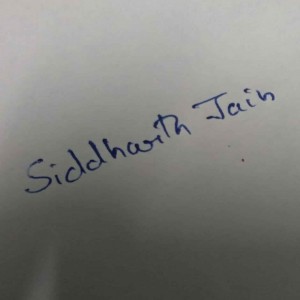 Siddharth Jain